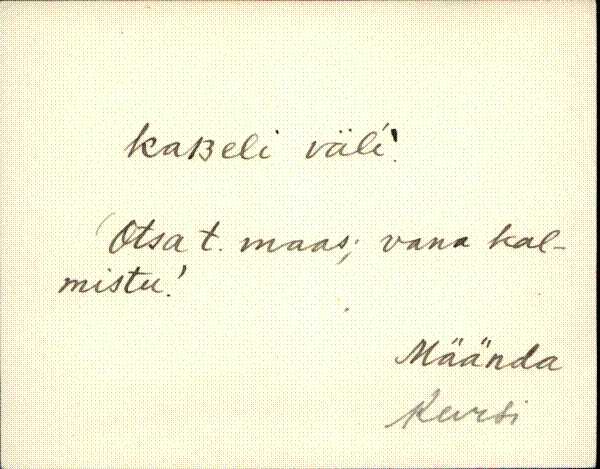 kaBeli väli'.
Otsa t. maas; vana kal-
mistu!
Mäända